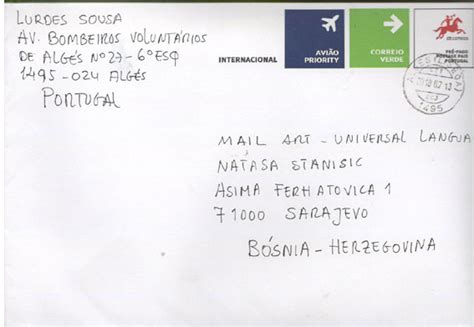 LURDES SOUSA
AV. BOMBEIROS VOLUNTÁRIOS
DE ALGÉS Nº 27-6º ESQ
1495-024 ALGÉS
PORTUGAL
INTERNACIONAL
AVIÃO
PRIORITY
CORREIO
VERDE
PRÉ-PAGO
POSTAGE PAID
PORTUGAL
1495
MAIL ART - UNIVERSAL LANGUA
NATASA STANISIC
ASIMA FERHATOVICA 1
71000 SARAJEVO
BÓSNIA-HERZEGOVINA